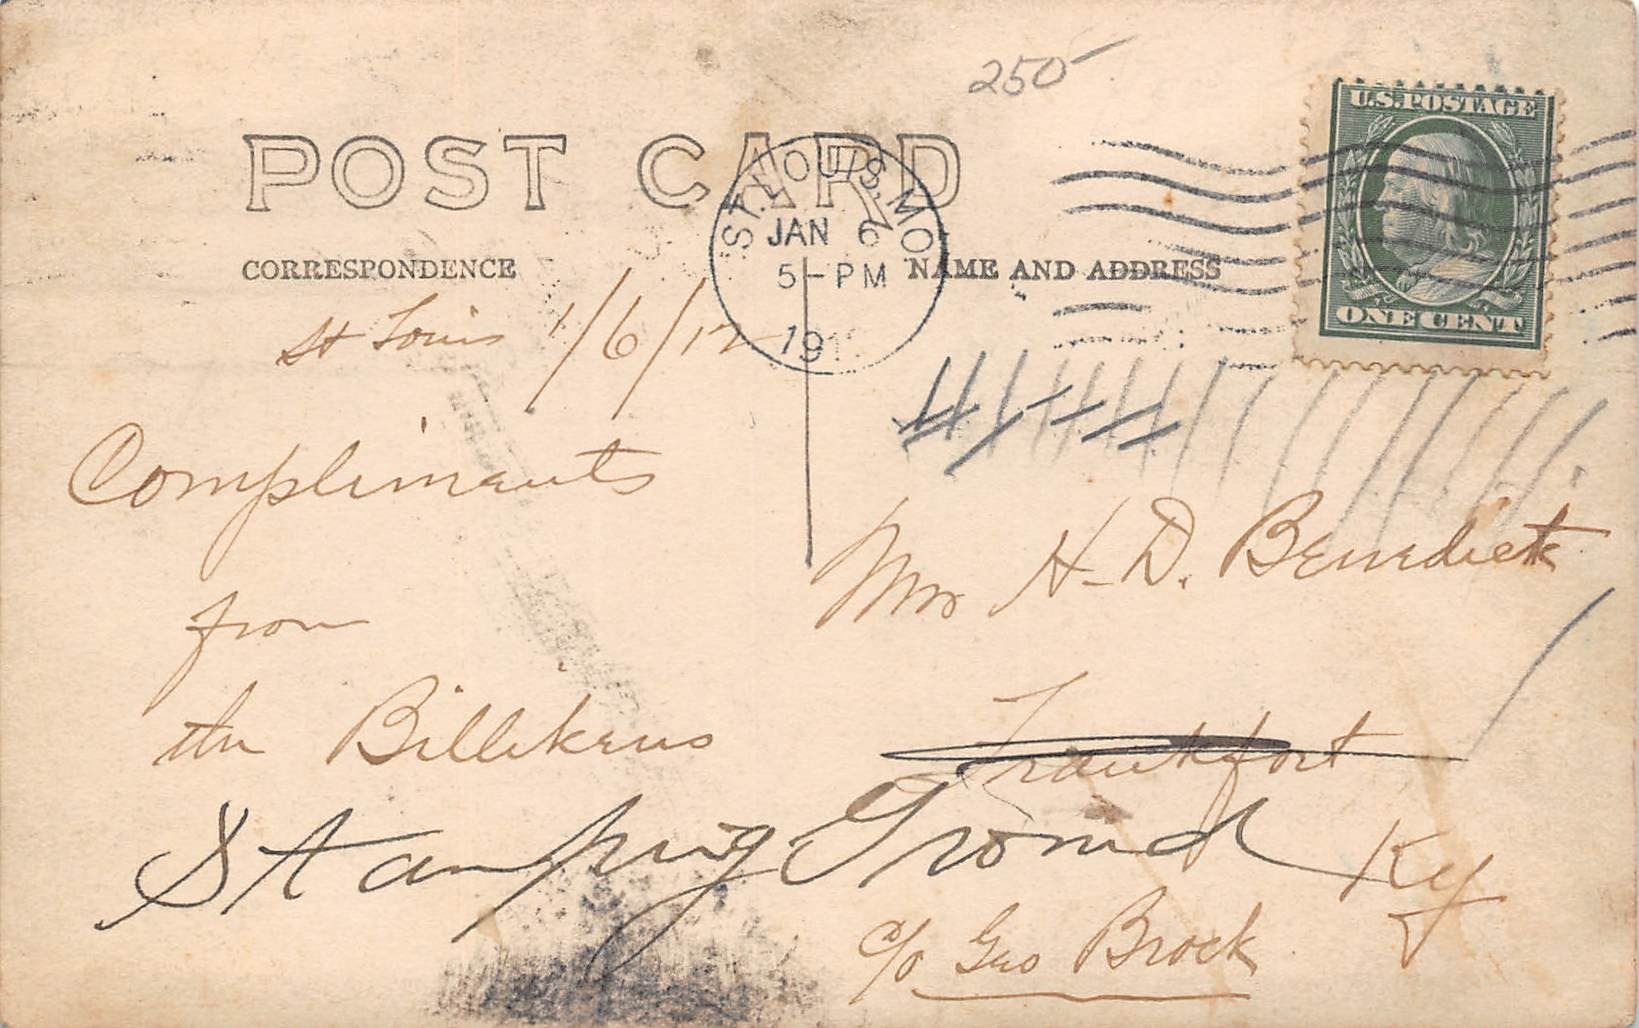 250
U.S. POSTAGE
ONE CENT
POST CARD
ST. LOUIS, MO.
JAN 6
5-PM
191
CORRESPONDENCE
NAME AND ADDRESS
St Louis 1/6/12
Compliments
from
the Billikens
Mrs H-D. Benedict
Frankfort
Stamping Ground
Ky
c/o Geo Brock